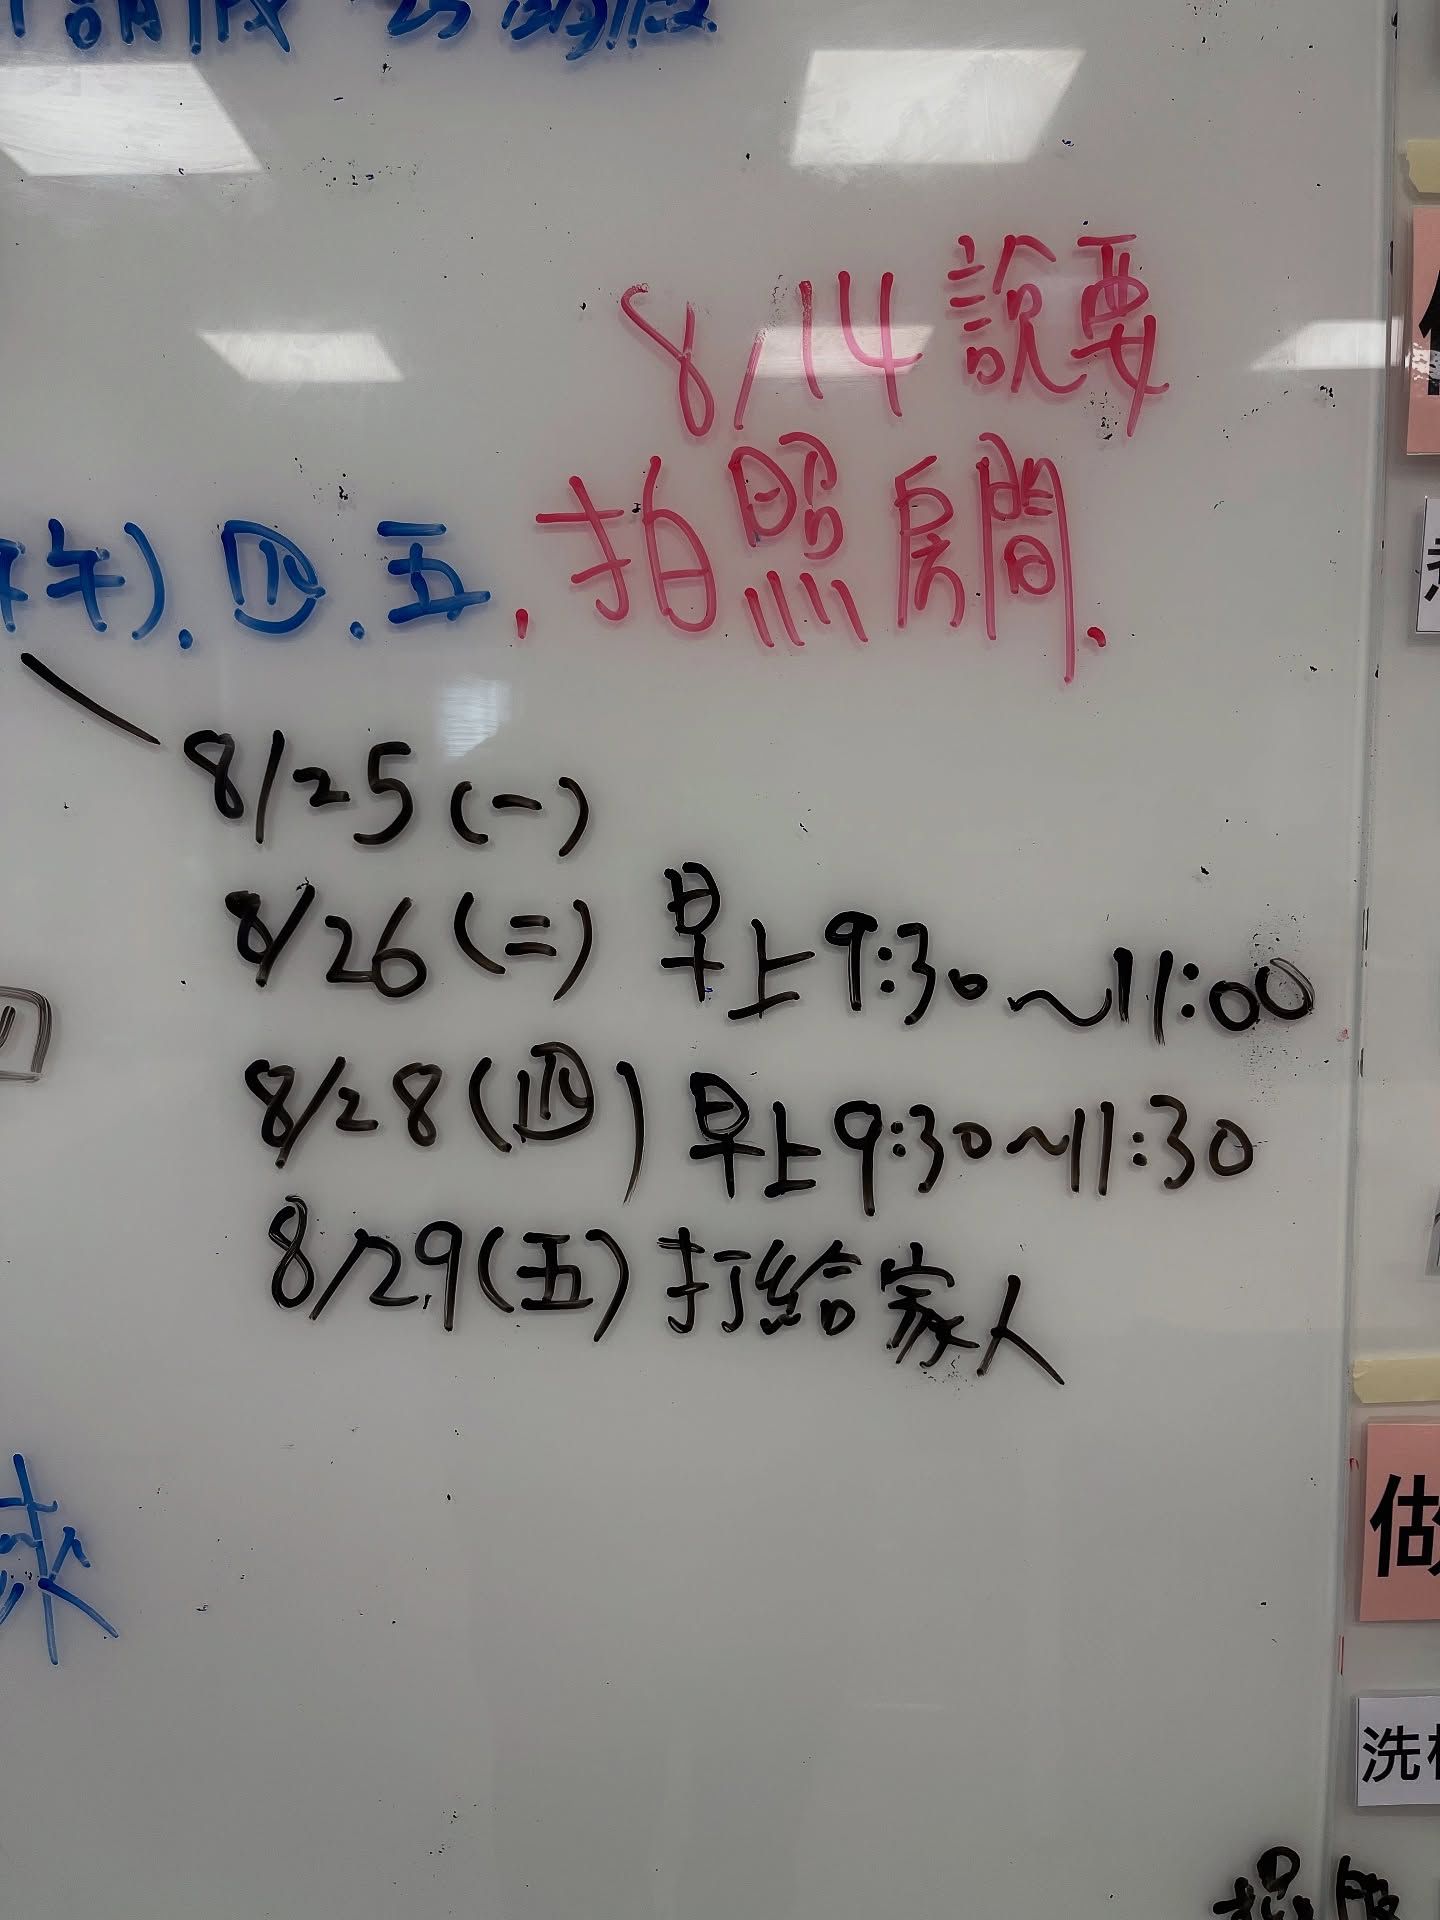 8/14 說要
午). 四. 五. 拍照房間.
8/25 (一)
8/26 (二) 早上 9:30~11:00
8/28 (四) 早上 9:30~11:30
8/29 (五) 打給家人
做
洗